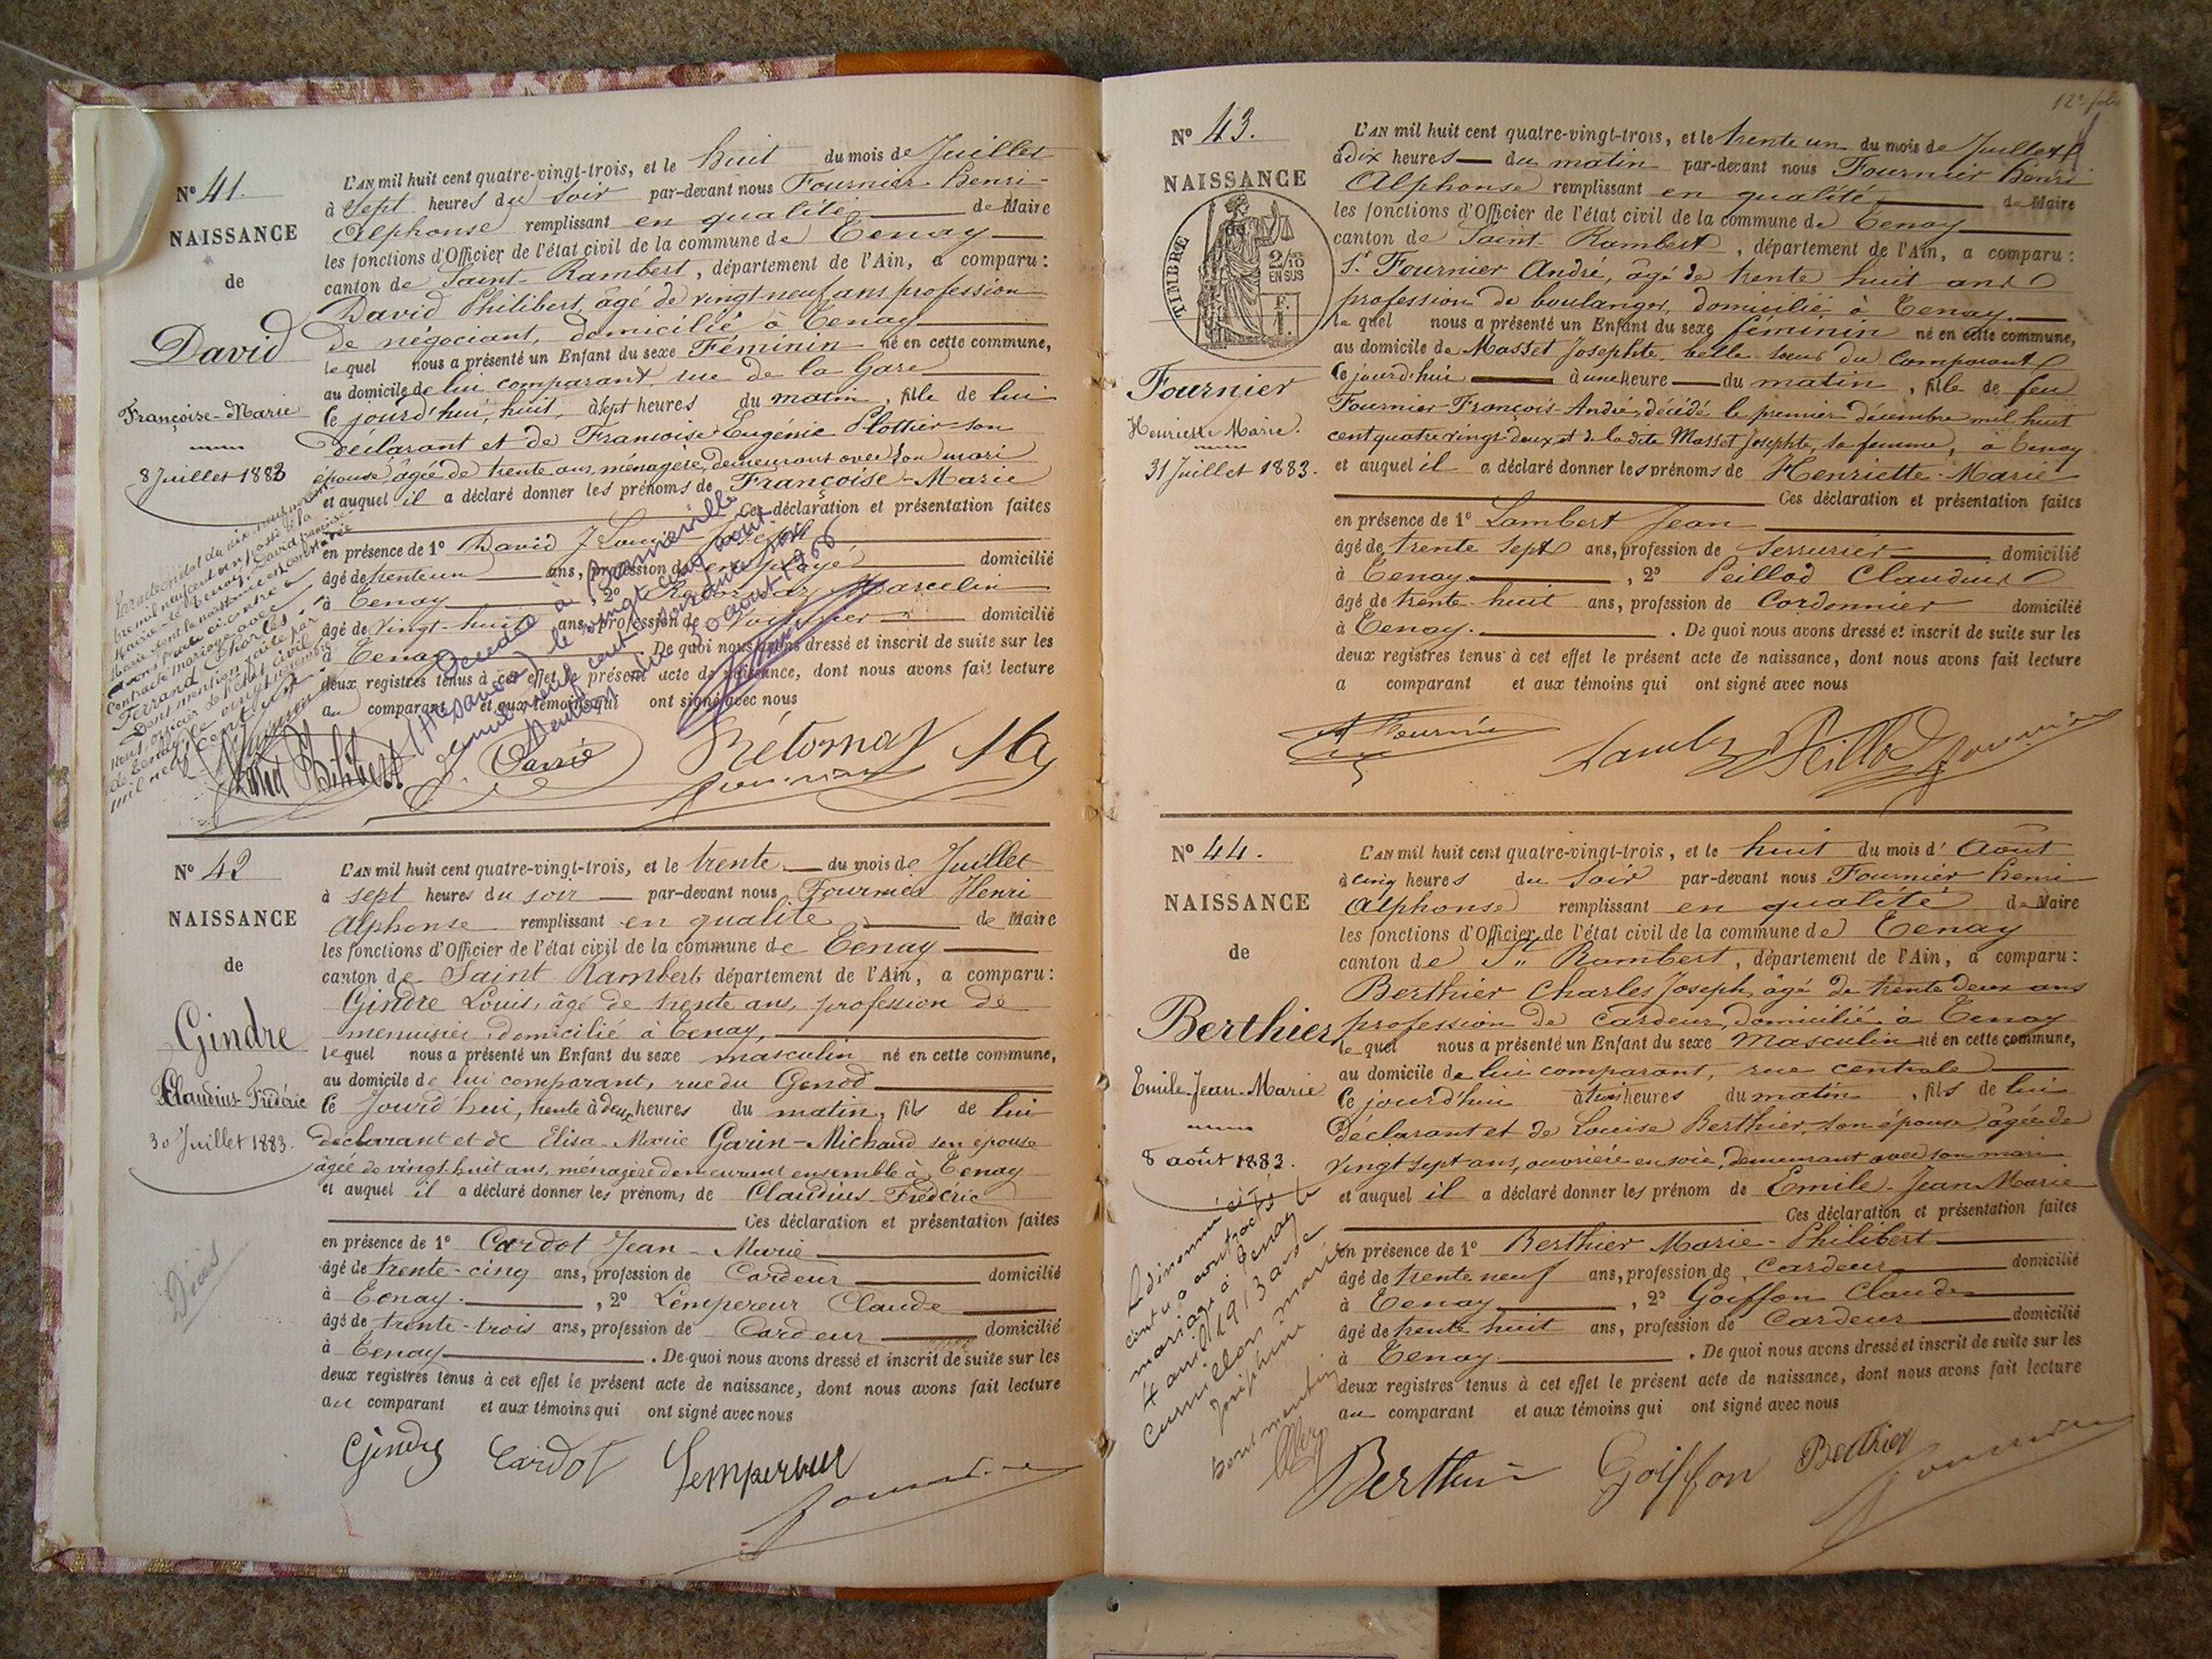 N° 41.
NAISSANCE
de
David
Françoise-Marie
8 Juillet 1883
L'AN mil huit cent quatre-vingt-trois, et le huit du mois de Juillet
à sept heures du soir par-devant nous Fournier Henri-
Alphonse remplissant en qualité de Maire
les fonctions d'Officier de l'état civil de la commune de Tenay
canton de Saint-Rambert, département de l'Ain, a comparu :
David Philibert, âgé de vingt-neuf ans profession
de négociant, domicilié à Tenay
lequel nous a présenté un Enfant du sexe Féminin né en cette commune,
au domicile de lui comparant, rue de la Gare
ce jourd'hui, huit, à sept heures du matin, fille de lui
déclarant et de Françoise Eugénie Plottier son
épouse, âgée de trente ans, ménagère, demeurant avec son mari
et auquel il a déclaré donner les prénoms de Françoise-Marie
Ces déclaration et présentation faites
en présence de 1° David J Louis
âgé de trente un ans, profession de employé domicilié
à Tenay, 2° Marcelin
âgé de vingt-huit ans, profession de domicilié
à Tenay. De quoi nous avons dressé et inscrit de suite sur les
deux registres tenus à cet effet le présent acte de naissance, dont nous avons fait lecture
au comparant et aux témoins qui ont signé avec nous
Décédée à Bonneville
le vingt cinq août
mil neuf cent soixante six
Mention du 30 août 1966
David Philibert
N° 42
NAISSANCE
de
Gindre
Claudius-Frédéric
30 Juillet 1883.
Décès
L'AN mil huit cent quatre-vingt-trois, et le trente du mois de Juillet
à sept heures du soir par-devant nous Fournier Henri
Alphonse remplissant en qualité de Maire
les fonctions d'Officier de l'état civil de la commune de Tenay
canton de Saint Rambert département de l'Ain, a comparu :
Gindre Louis, âgé de trente ans, profession de
menuisier, domicilié à Tenay,
lequel nous a présenté un Enfant du sexe masculin né en cette commune,
au domicile de lui comparant, rue du Genod
ce Jourd'hui, trente à deux heures du matin, fils de lui
déclarant et de Elisa-Marie Garin-Michaud son épouse
âgée de vingt huit ans, ménagère demeurant ensemble à Tenay
et auquel il a déclaré donner les prénoms de Claudius-Frédéric
Ces déclaration et présentation faites
en présence de 1° Cardot Jean-Marie
âgé de trente-cinq ans, profession de Cardeur domicilié
à Tenay., 2° Lempereur Claude
âgé de trente-trois ans, profession de Cardeur domicilié
à Tenay. De quoi nous avons dressé et inscrit de suite sur les
deux registres tenus à cet effet le présent acte de naissance, dont nous avons fait lecture
au comparant et aux témoins qui ont signé avec nous
Gindre Cardot Lempereur
Fournier
N° 43.
NAISSANCE
TIMBRE
2/10
EN SUS
Fournier
Henriette Marie.
31 Juillet 1883.
L'AN mil huit cent quatre-vingt-trois, et le trente un du mois de Juillet
à dix heures du matin par-devant nous Fournier Henri
Alphonse remplissant en qualité de Maire
les fonctions d'Officier de l'état civil de la commune de Tenay
canton de Saint-Rambert, département de l'Ain, a comparu :
Sr Fournier André, âgé de trente huit ans
profession de boulanger, domicilié à Tenay.
lequel nous a présenté un Enfant du sexe féminin né en cette commune,
au domicile de Masset Josephte, belle-soeur du comparant
ce jourd'hui à une heure du matin, fille de feu
Fournier François-André, décédé le premier décembre mil huit
cent quatre vingt deux, et de la dite Masset Josephte, sa femme, à Tenay
et auquel il a déclaré donner les prénoms de Henriette-Marie
Ces déclaration et présentation faites
en présence de 1° Lambert Jean
âgé de trente sept ans, profession de serrurier domicilié
à Tenay., 2° Peillod Claudius
âgé de trente-huit ans, profession de Cordonnier domicilié
à Tenay. De quoi nous avons dressé et inscrit de suite sur les
deux registres tenus à cet effet le présent acte de naissance, dont nous avons fait lecture
a comparant et aux témoins qui ont signé avec nous
Peillod Fournier
N° 44.
NAISSANCE
de
Berthier
Emile-Jean-Marie
8 août 1883.
Le dénommé ci-
contre a contracté
mariage à Tenay le
4 avril 1913 avec
Marie
Joséphine
L'AN mil huit cent quatre-vingt-trois, et le huit du mois d'Août
à cinq heures du Soir par-devant nous Fournier Henri
Alphonse remplissant en qualité de Maire
les fonctions d'Officier de l'état civil de la commune de Tenay
canton de St Rambert, département de l'Ain, a comparu :
Berthier Charles Joseph, âgé de trente deux ans
profession de cardeur, domicilié à Tenay
lequel nous a présenté un Enfant du sexe Masculin né en cette commune,
au domicile de lui comparant, rue centrale
ce jourd'hui à trois heures du matin, fils de lui
déclarant et de Louise Berthier, son épouse, âgée de
vingt sept ans, ouvrière en soie, demeurant avec son mari
et auquel il a déclaré donner les prénom de Emile-Jean-Marie
Ces déclaration et présentation faites
en présence de 1° Berthier Marie-Philibert
âgé de trente neuf ans, profession de Cardeur domicilié
à Tenay, 2° Goiffon Claude
âgé de trente huit ans, profession de Cardeur domicilié
à Tenay. De quoi nous avons dressé et inscrit de suite sur les
deux registres tenus à cet effet le présent acte de naissance, dont nous avons fait lecture
au comparant et aux témoins qui ont signé avec nous
Berthier Goiffon Berthier
Fournier